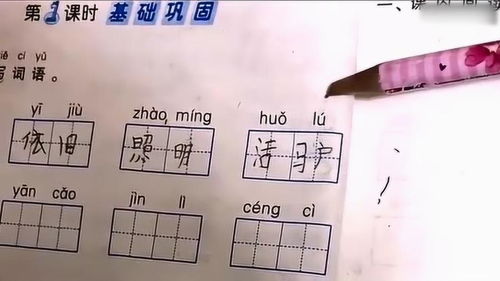 第1课时 基础巩固
一、课内阅
xiě cí yǔ
写词语。
yī jiù zhào míng huǒ lú
依旧 照明 驴
yān cǎo jìn lì céng cì